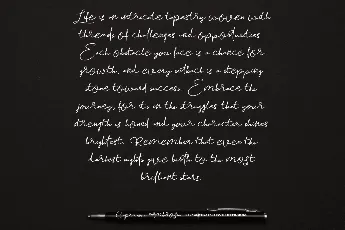 Life is an intricate tapestry woven with
threads of challenges and opportunities.
Each obstacle you face is a chance for
growth, and every setback is a stepping
stone toward success. Embrace the
journey, for it's in the struggles that your
strength is honed and your character shines
brightest. Remember that even the
darkest nights give birth to the most
brilliant stars.